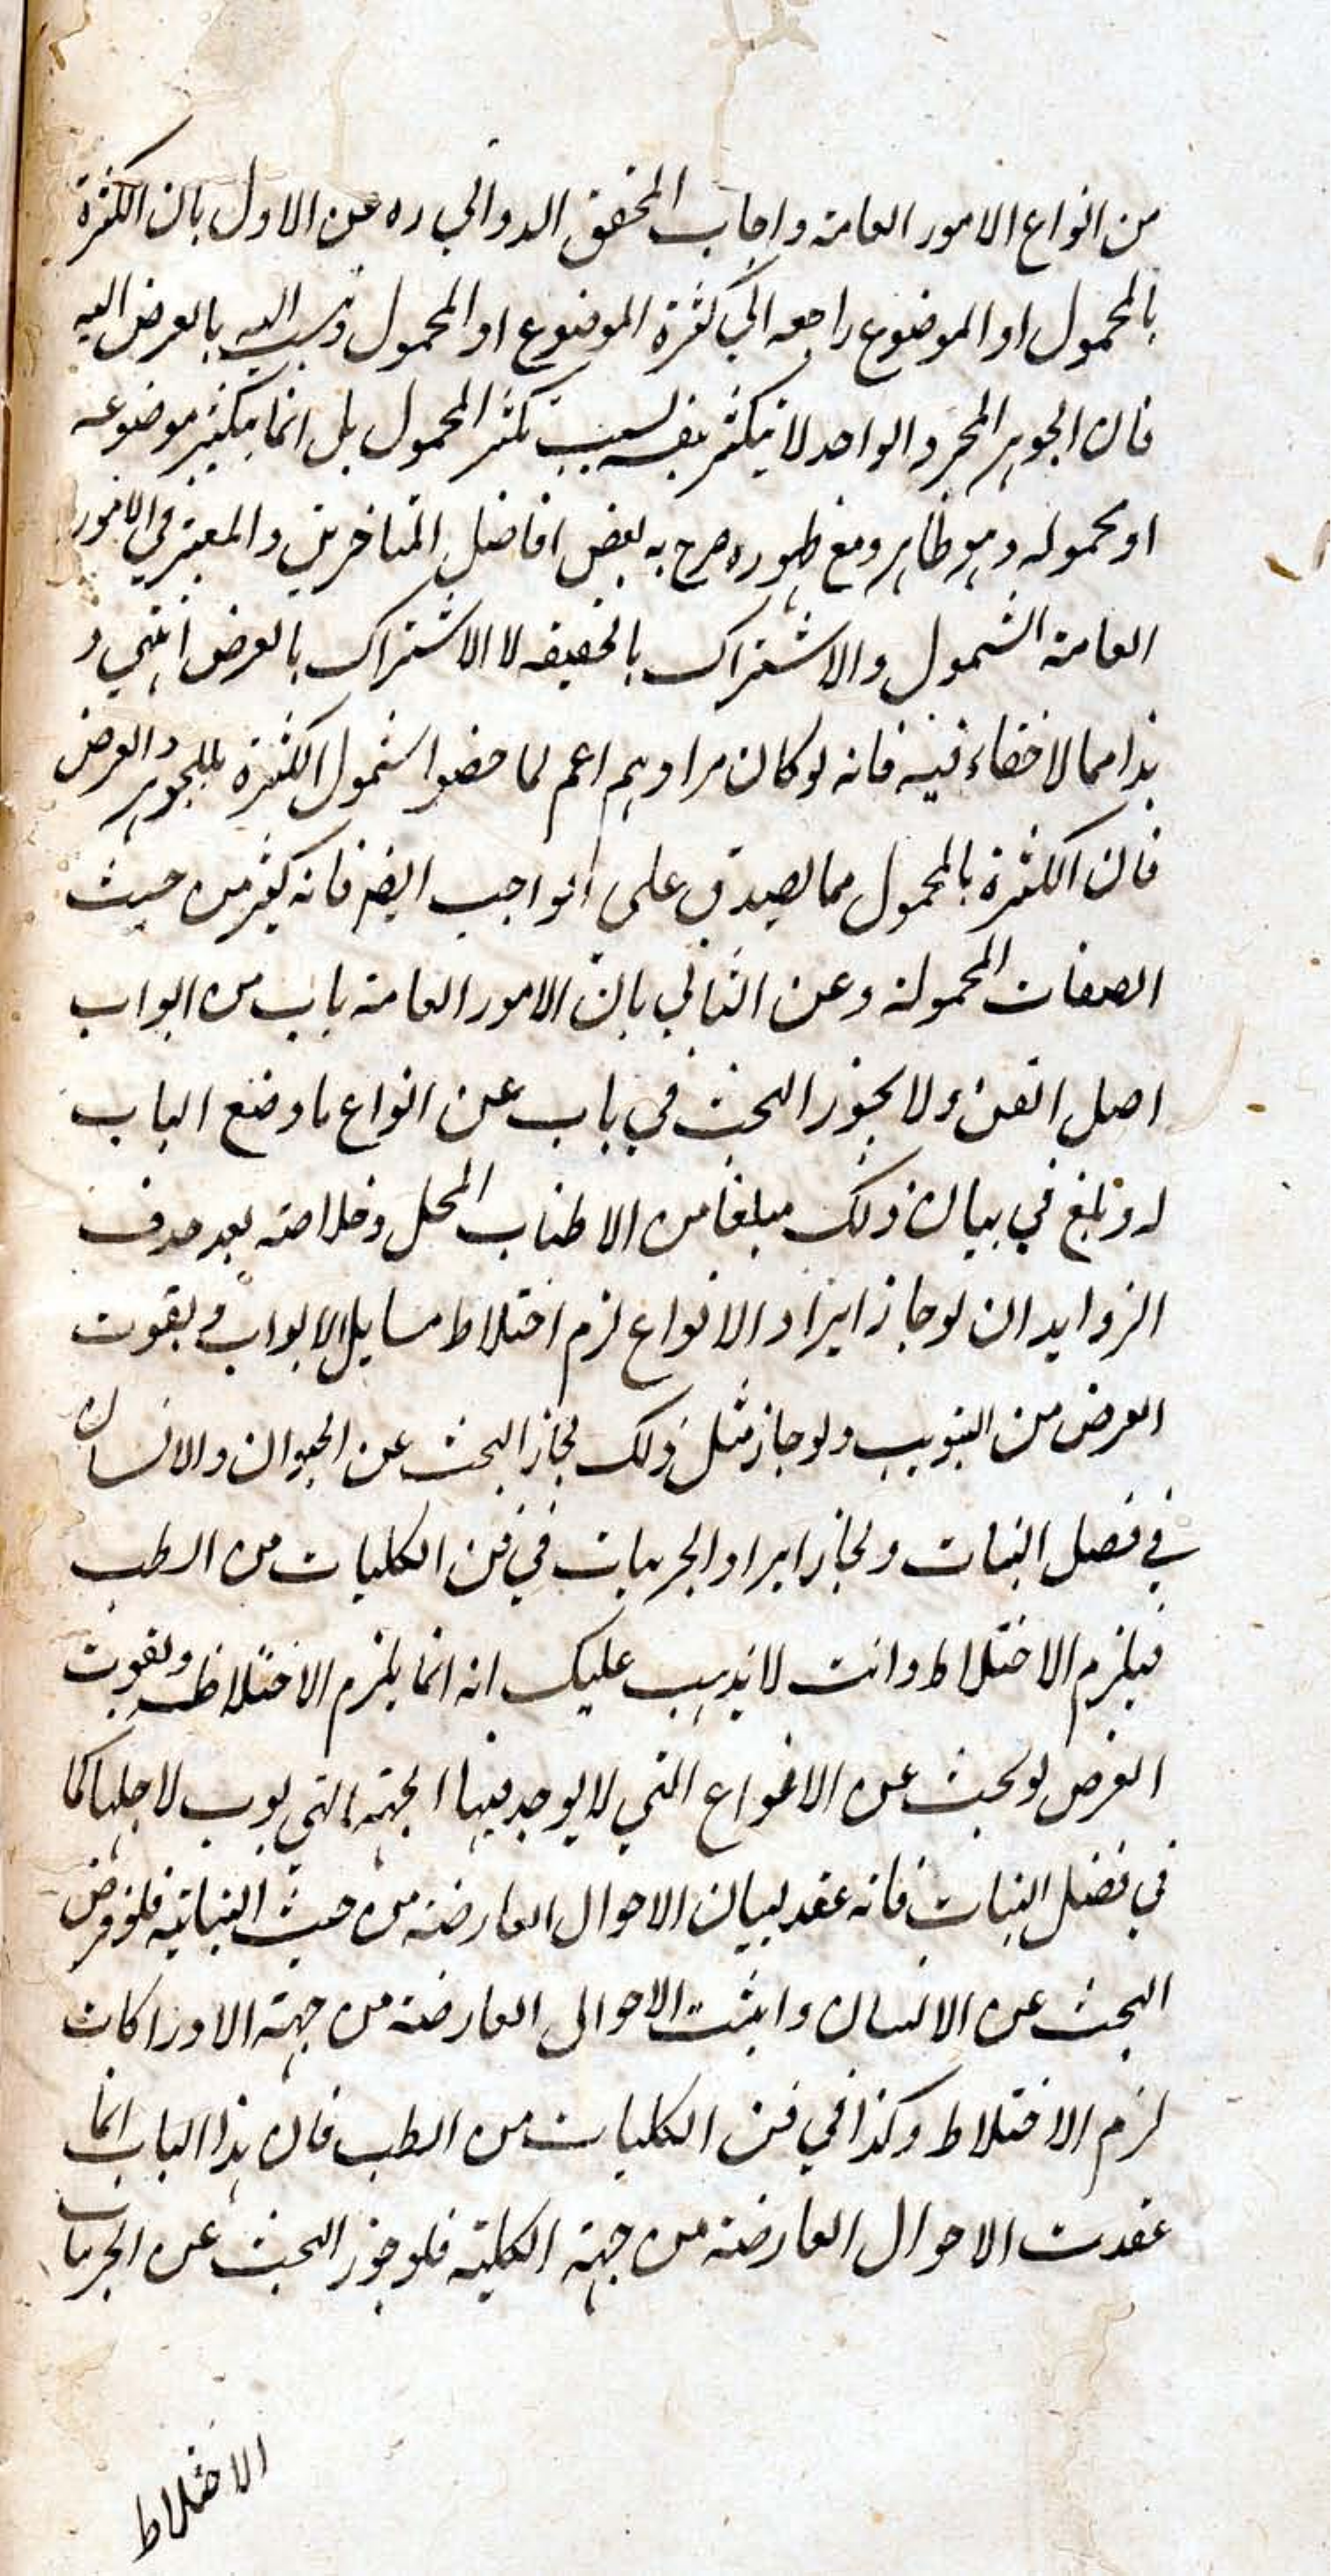 من انواع الامور العامة واجاب المحقق الدواني ره عن الاول بان الكثرة
بالمحمول او الموضوع راجعه الي كثرة الموضوع او المحمول ونسب اليه بالعرض اليه
فان الجوهر المجرد الواحد لا يتكثر بنفسه بسبب تكثر المحمول بل انما يتكثر موضوعه
او محموله وهو ظاهر ومع ظهوره صرح به بعض افاضل المتاخرين والمعتبر في الامور
العامة الشمول والاشتراك بالحقيقه لا الاشتراك بالعرض انتهي و
هذا مما لاخفاء فيه فانه لو كان مرادهم اعم لما خصوا شمول الكثرة بالجوهر والعرض
فان الكثرة بالمحمول مما يصدق على الواجب ايضا فانه كثير من حيث
الصفات المحمولة وعن الثاني بان الامور العامة باب من ابواب
اصل الفن ولا يجوز البحث في باب عن انواع ما وضع الباب
له وبلغ في بيان ذلك مبلغا من الاطناب المخل وخلاصته بعد حذف
الزوايد ان لو جاز ايراد الانواع لزم اختلاط مسايل الابواب ويفوت
الغرض من التبويب ولو جاز مثل ذلك لجاز البحث عن الحيوان والانسان
في فصل النبات ولجاز ايراد الجزئيات في فن الكليات من الطب
فيلزم الاختلاط وانت لا يذهب عليك انه انما يلزم الاختلاط ويفوت
الغرض لو بحث عن الانواع التي لا يوجد فيها الجهة التي بوب لاجلها كما
في فصل النبات فانه عقد لبيان الاحوال العارضة من حيث النباتية فلو فرض
البحث عن الانسان واثبت الاحوال العارضة من جهة الادراكات
لزم الاختلاط وكذا في فن الكليات من الطب فان هذا الباب انما
عقدت الاحوال العارضة من جهة الكلية فلو جوز البحث عن الجزئيات
الاختلاط